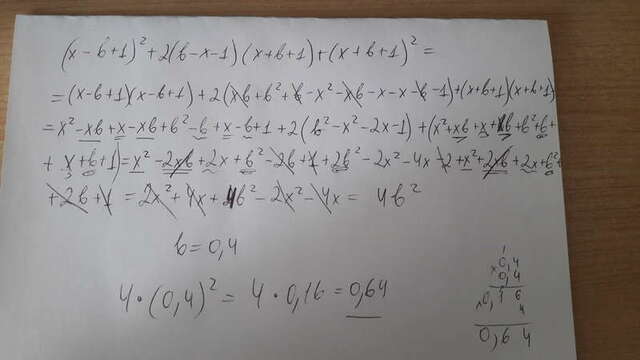 (x-b+1)²+2(b-x-1)(x+b+1)+(x+b+1)²=
=(x-b+1)(x-b+1)+2(xb+b²+b-x²-xb-x-x-b-1)+(x+b+1)(x+b+1)
=x²-xb+x-xb+b²-b+x-b+1+2(b²-x²-2x-1)+(x²+xb+x+xb+b²+b+
+x+b+1)=x²-2xb+2x+b²-2b+1+2b²-2x²-4x-2+x²+2xb+2x+b²+
+2b+1=2x²+4x+4b²-2x²-4x=4b²
b=0,4
4·(0,4)²=4·0,16=0,64
1
×0,4
0,4
×0,16
4
0,64